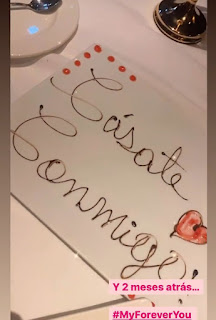 Cásate
Conmigo!
Y 2 meses atrás...
#MyForeverYou